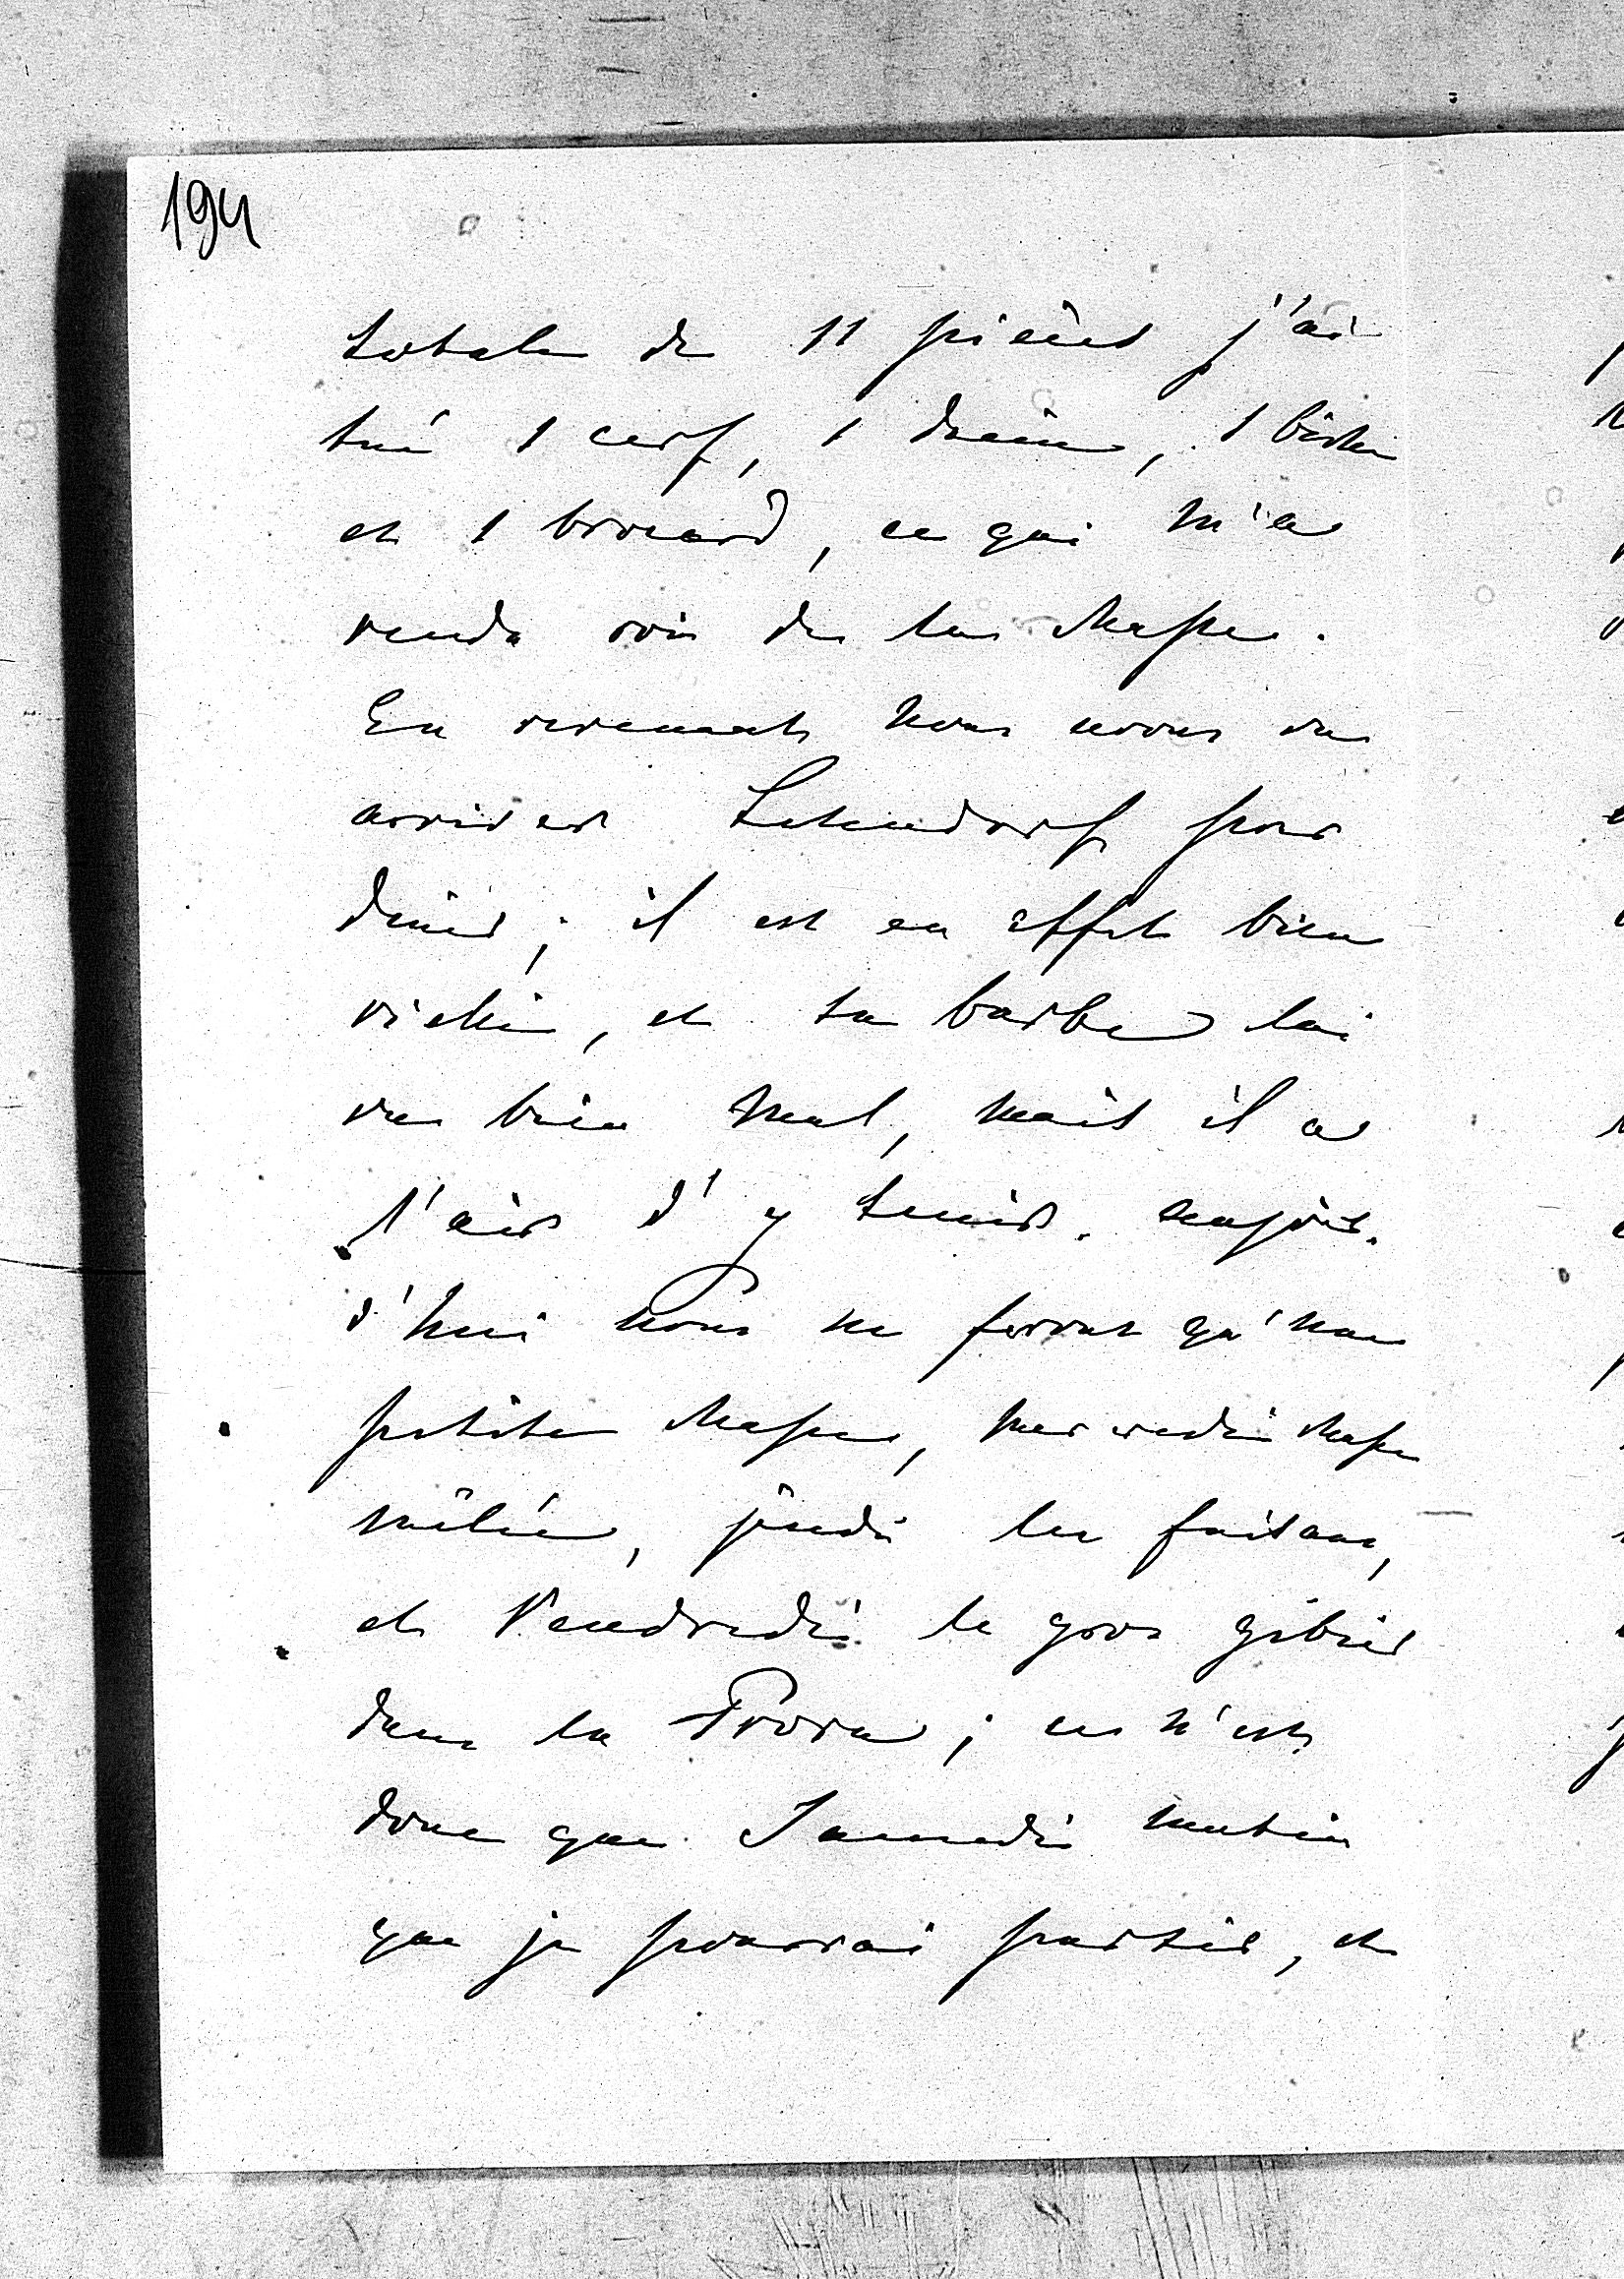 194
totale de 11 pièces j'ai
tué 1 cerf, 1 daine, 1 biche
et 1 brocard, ce qui m'a
rendu roi de la chasse.
En revenant nous avons vu
arriver Lehndorff pour
diner; il est en effet bien
vieilli, et sa barbe lui
va bien mal, mais il a
l'air d'y tenir. aujour-
d'hui nous ne ferons qu'une
petite chasse, mercredi chasse
mêlée, jeudi les faisans,
et Vendredi le gros gibier
dans la ; ce n'est
donc que Samedi matin
que je pourrai partir, et